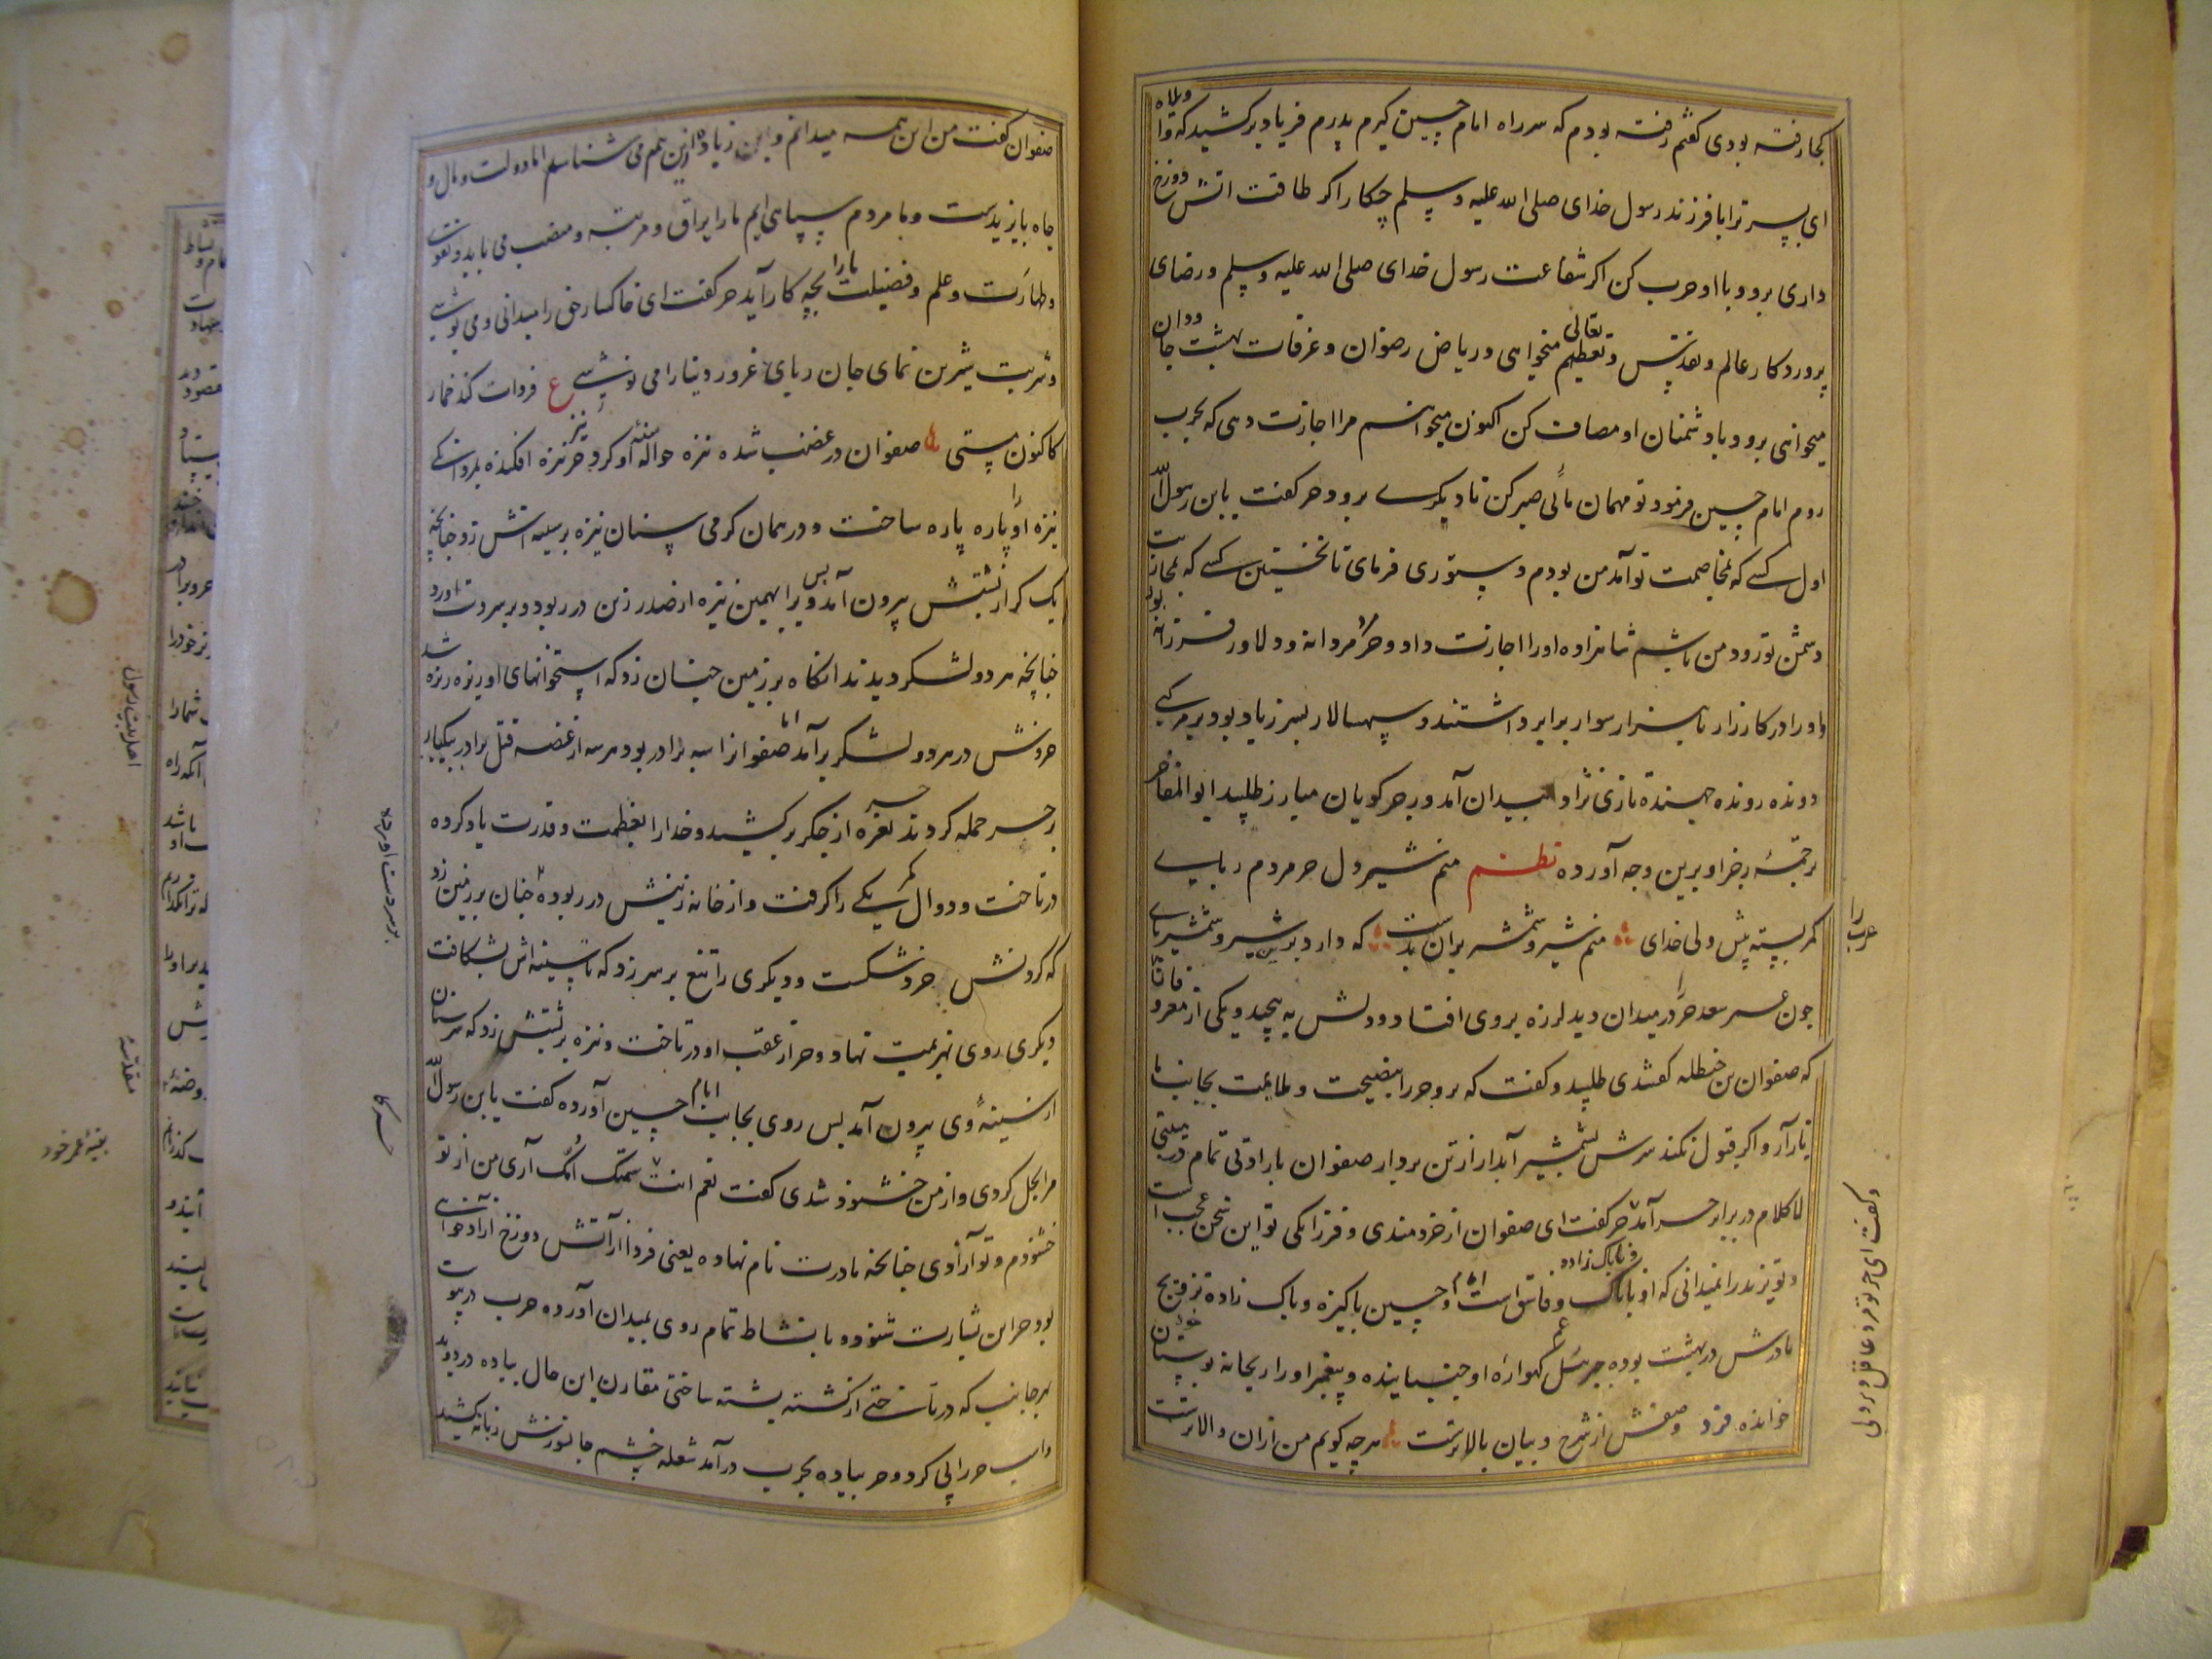 کجا رفته بودی گفتم رفته بودم که سر راه امام حسین گیرم پدرم فریاد برکشید که واویلاه
ای پسر ترا با فرزند رسول خدای صلی الله علیه وسلم چکار اگر طاقت اتش دوزخ
داری برو و با او حرب کن اگر شفاعت رسول خدای صلی الله علیه وسلم و رضای
پروردکار عالم و تقدیس و تعظیم تعالی میخواهی و ریاض رضوان و غرفات بهشت جاودان
میخواهی برو و با دشمنان او مصاف کن اکنون میخواهم مرا اجازت دهی که بحرب
روم امام حسین فرمود تو مهمان مائی صبر کن تا دیکری برود حر کفت یا ابن رسول الله
اول کسی که بمخاصمت تو آمد من بودم دستوری فرمای تا نخستین کسی که بمحاربت
دشمن تو رود من باشم شاهزاده اورا اجازت داد و حر مردانه و دلاور فرزانه بود
و اورا در کارزار با هزار سوار برابر داشتند و سپهسالار پسر زیاد بود بر مرکبی
دونده رونده جهنده تازی نژاد بمیدان آمد و رجز کویان مبارز طلبید ابو المفاخر
ترجمهٔ رجز او برین وجه آورده نظم منم شیر دل حر مردم ربای
کمر بسته پیش ولی خدای منم شیر و شمشیر بران بدست که دارد بر شیر و شمشیر پای
چون عمر سعد حر را در میدان دید لرزه بر وی افتاد و دلش به پیچید و یکی از معروفان
عرب را
که صفوان بن حنظله کفتندی طلبید و کفت که برو حر را بنصیحت و ملایمت بجانب ما
باز آر و اکر قبول نکند سرش بشمشیر آبدار از تن بردار صفوان با رعونتی تمام در
لا کلام در برابر حر آمد حر کفت ای صفوان از خردمندی و فرزانکی تو این سخن عجب است
وکفت ای حر تو مرد عاقل و مردی
و تو یزید را نمیدانی که او ناپاک و ناپاک زاده و فاسق است و امام حسین پاکیزه و پاک زاده تزویج
مادرش در بهشت بوده جبرئیل ع م کهواره او جنبانیده و پیغمبر اورا ریحانه بوستان خویش
خوانده فرد وصفش از شرح و بیان بالاترست هرچه کویم من ازان والاترست
صفوان کفت من این همه میدانم و زیاده ازین هم می شناسم اما دولت و مال و
جاه با یزیدست و ما مردم سپاهی ایم ما را یراق و مرتبه و منصب می باید و تقوی
و طهارت و علم و فضیلت ما را بچه کار آید حر کفت ای خاکسار حق را میدانی و می پوشی
و شربت شیرین نمای جان ربای غرور دنیا را می نوشی ع فردات کند خمار
کاکنون مستی صفوان در غضب شده نیزه حوالهٔ سینهٔ او کرد حر نیز نیزه افکنده بمردانکی
نیزه او را پاره پاره ساخت و در همان کرمی سنان نیزه بر سینه اتش زد چنانچه
یک کز از پشتش بیرون آمد و پس ویرا بهمین نیزه از صدر زین در ربود و بر سر دست آورد
چنانچه هر دو لشکر دیدند انکاه بر زمین چنان زد که استخوانهای او ریزه ریزه شد
خروش در هر دو لشکر برآمد اما صفوان را سه برادر بود هر سه از غصه قتل برادر بیکبار
بر حر حمله کردند حر نعره از جکر برکشید و خدا را بعظمت و قدرت یاد کرده
درتاخت و دوال کمر یکی را کرفت و از خانه زینش در ربوده چنان بر زمین زد
بر سر دست آورده
که کردنش خرد شکست و دیکری را تیغ بر سر زد که تا سینه اش بشکافت
دیکری روی بهزیمت نهاد و حر از عقب او درتاخت و نیزه بر پشتش زد که سر سنان
از سینهٔ وی بیرون آمد پس روی بجانب امام حسین آورده کفت یا ابن رسول الله
مرا بحل کردی و از من خشنود شدی کفت نعم انت سمتک امک آری من از تو
خشنودم و تو آزادی چنانچه مادرت نام نهاده یعنی فردا از آتش دوزخ آزاد خواهی
بود حر این بشارت شنود و با نشاط تمام روی بمیدان آورده حرب در پیوست
بهر جانب که درتاختی از کشته پشته ساختی مقارن این حال پیاده در دوید
و اسب حر را پی کرد و حر پیاده بحرب درآمد شعله خشم جانسوزش زبانه کشید
اهل بیت رسول
مقدمهٔ
بقیهٔ عمر خود